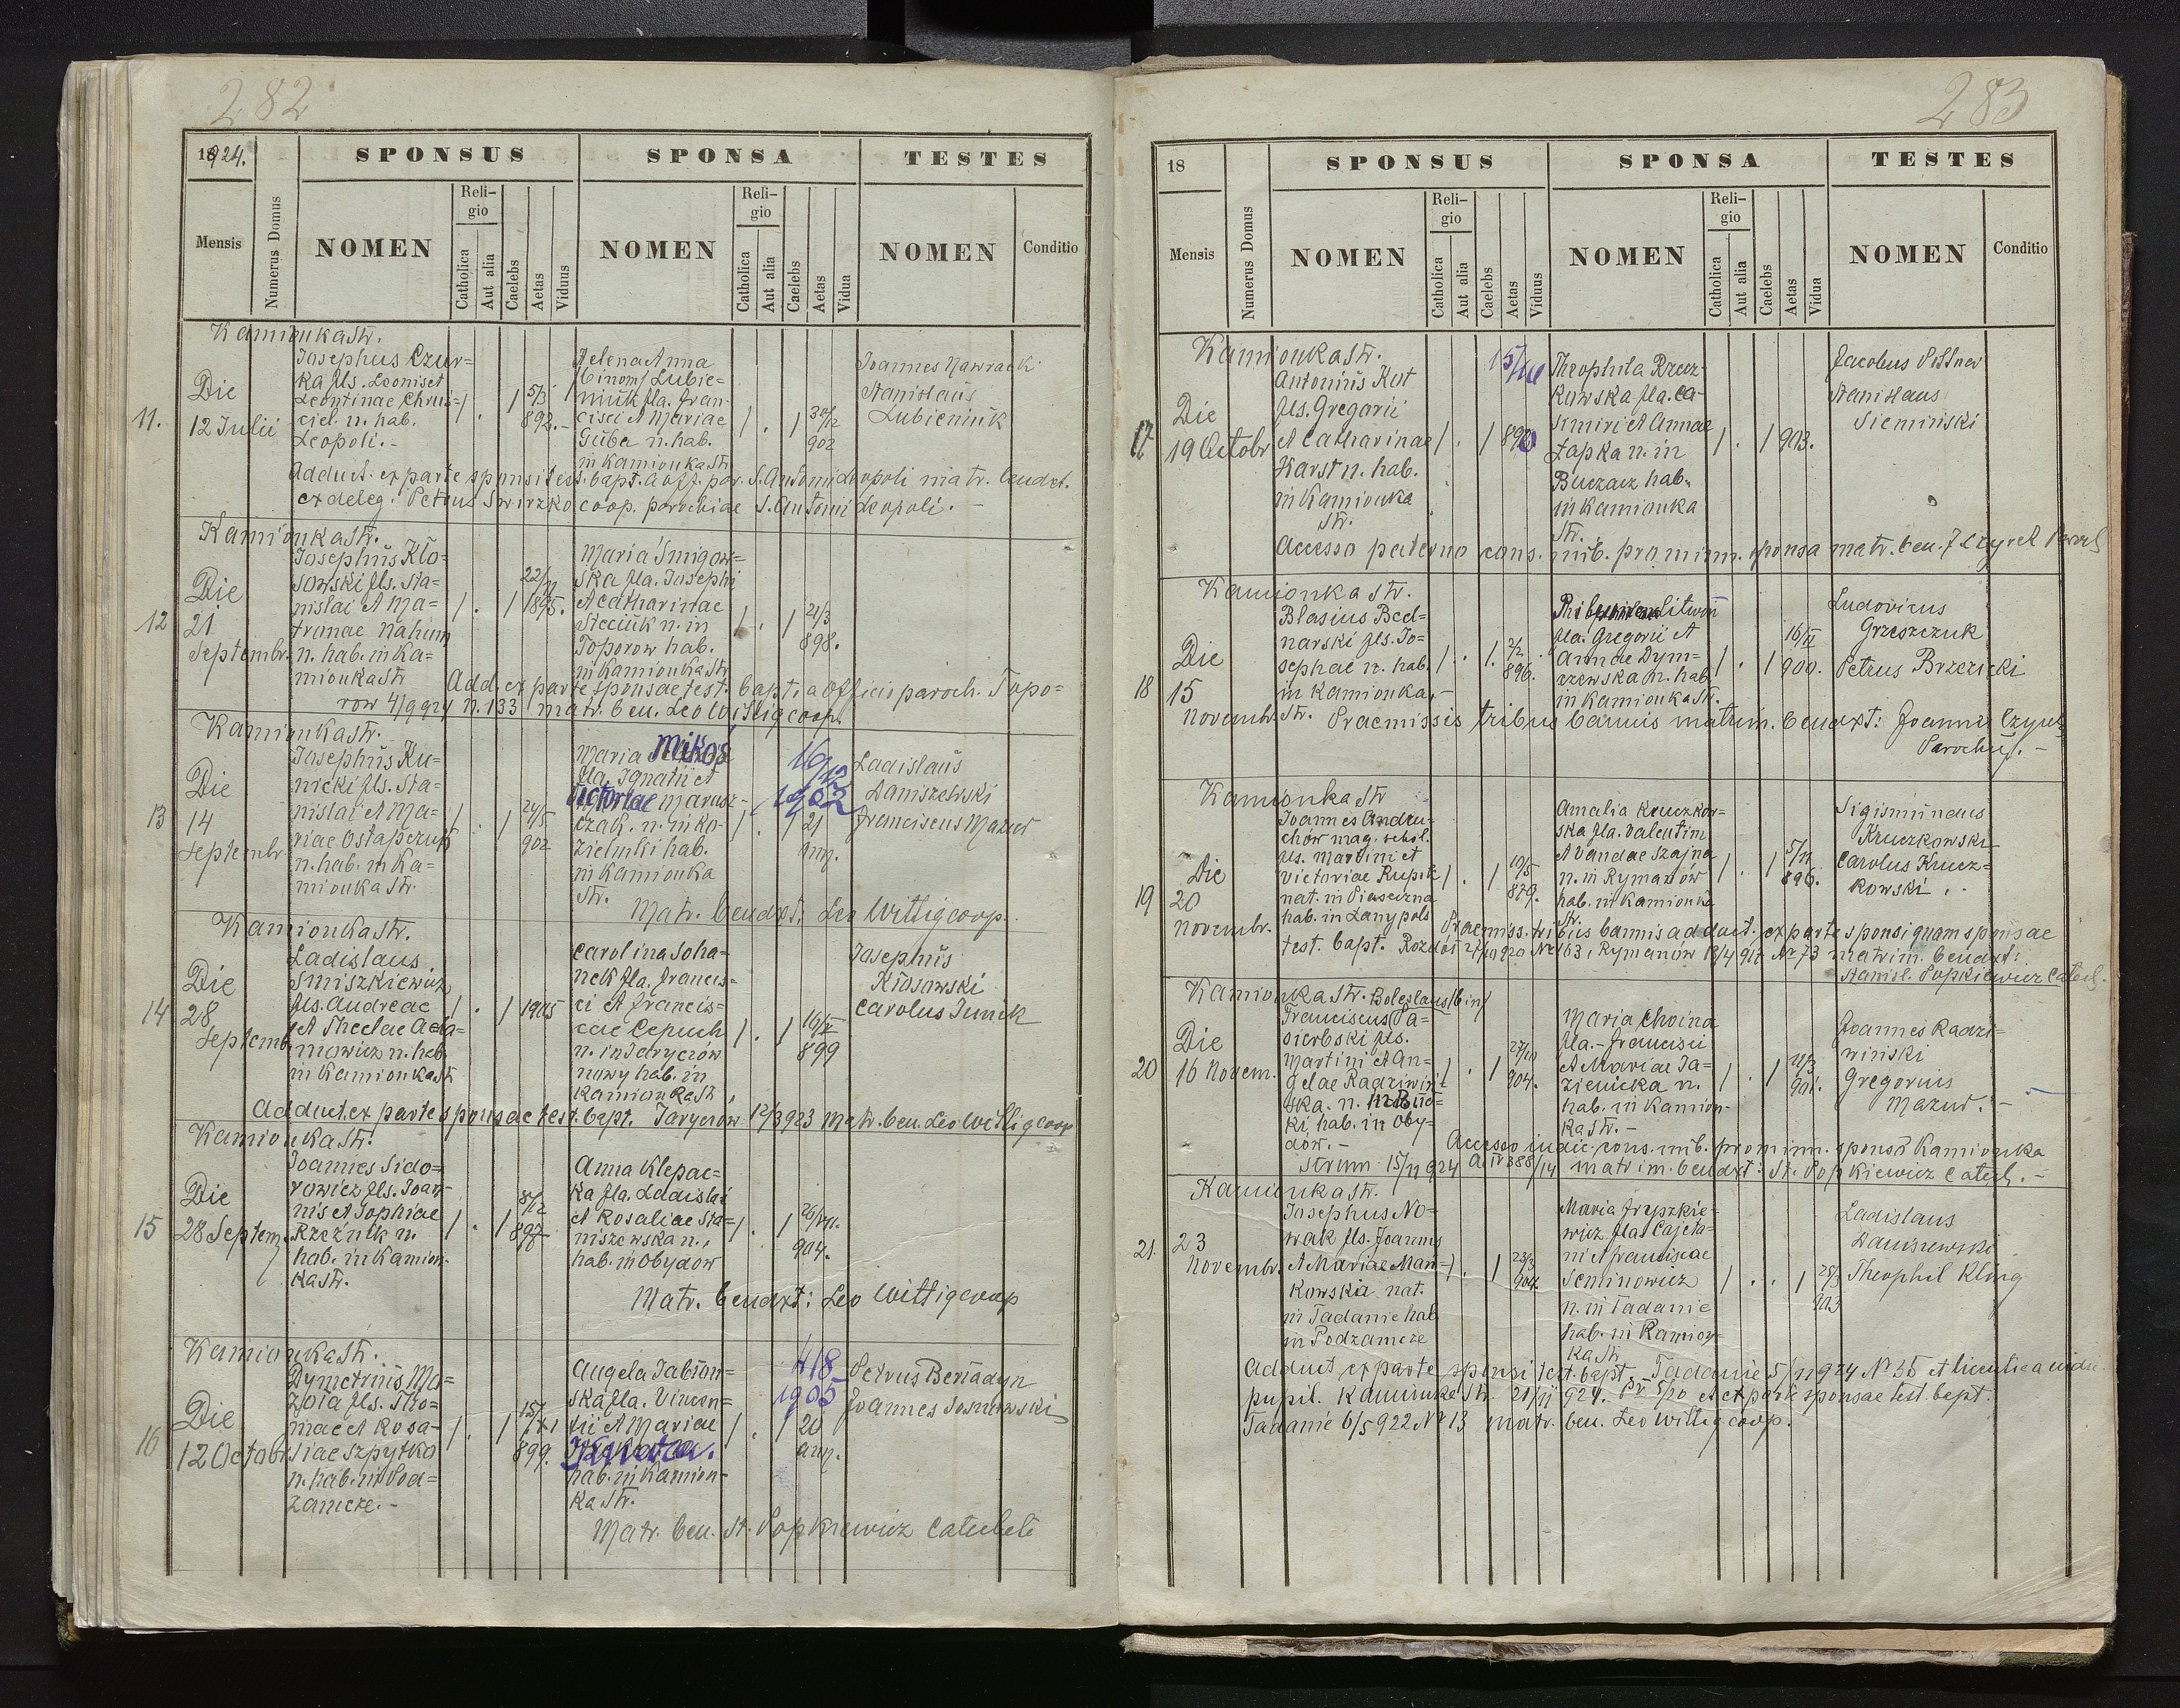 282
1924.
SPONSUS
SPONSA
TESTES
Mensis
Numerus Domus
NOMEN
Religio
Catholica
Aut alia
Caelebs
Aetas
Viduus
NOMEN
Religio
Catholica
Aut alia
Caelebs
Aetas
Vidua
NOMEN
Conditio
Kamionka Str.
11.
Die
12 Julii
Josephus Czur=
ka fls. Leoniset
Leontinae Chrus=
ciel. n. hab.
Leopoli.-
1 . 1
5/3
892.-
Helena Anna
(binom) Lubie=
niuk fla. Fran-
cisci et Mariae
Guba n. hab.
in Kamionka Str.
1 . 1
30/12
902
Joannes Nawracki
Stanislaus
Lubieniuk
Adduct. ex parte sponsi test. bapt. a off. par. S. Antonii Leopoli matr. bendxt.
ex deleg. Petrus Swirzko coop. parochiae S. Antonii Leopoli. -
Kamionka Str.
12
Die
21
Septembr.
Josephus Kło=
sowski fls. Sta=
nislai et Ma=
tronae Nahum
n. hab. in Ka=
mionka Str
1 . 1
22/11
1895.
Maria Śmigow=
ska fla. Josephi
et Catharinae
Steciuk n. in
Toporow hab.
in Kamionka Str.
1 . 1
21/3
898.
Add. ex parte sponsae test. bapt. a Officio paroch. Topo=
row 4/9 924 N. 133 matr. ben. Leo Wittig coop.
Kamionka Str.
13
Die
14
Septembr
Josephus Ku=
nicki fls. Sta=
nislai et Ma=
riae Ostapczuk
n. hab. in Ka=
mionka Str.
1 . 1
24/5
902
Maria Mikoś
fla. Ignatii et
Victoriae Marusz-
czak. n. in Ko-
zielniki hab.
in Kamionka
Str.
1 . 1
16/12
1902
21
ann.
Ladislaus
Daniszewski
Franciscus Mazur
Matr. bendxt: Leo Wittig coop.
Kamionka Str.
14
Die
28
Septemb.
Ladislaus
Smiszkiewicz
fls. Andreae
et Theclae Ada=
mowicz n. hab.
in Kamionka Str
1 . 1 1905
Carolina Soha=
nek fla. Francis=
ci et Francis=
cae Cepuch
n. in Jaryczów
nowy hab. in
Kamionka Str.
1 . 1
16/II
899
Josephus
Kłosowski
Carolus Junik
Adduct. ex parte sponsae test. bapt. Jaryczow 12/3 923 matr. ben. Leo Wittig coop
Kamionka Str.
15
Die
28 Septem.
Joannes Sido=
rowicz fls. Joan-
nis et Sophiae
Rzeźnik n.
hab. in Kamion-
ka Str.
1 . 1
8/12
897
Anna Klepac=
ka fla. Ladislai
et Rosaliae Sta=
niszewska n.,
hab. in Obydow
1 . 1
26/VII.
904.
Matr. bendxt: Leo Wittig coop
Kamionka Str.
16
Die
12 Octobr.
Dymetrius Ma=
zola fls. Tho=
mae et Rosa-
liae Szpytko
n. hab. in Pod=
zamcze.-
1 . 1
15/XI
899.
Angela Jabłon=
ska fla. Vincen=
tii et Mariae
hab. in Kamion-
ka Str.
1 . 1
4/8
1905
20
ann.
Petrus Bernadyn
Joannes Sosnowski
Matr. ben. St. Popkiewicz Catecheta
283
18
SPONSUS
SPONSA
TESTES
Mensis
Numerus Domus
NOMEN
Religio
Catholica
Aut alia
Caelebs
Aetas
Viduus
NOMEN
Religio
Catholica
Aut alia
Caelebs
Aetas
Vidua
NOMEN
Conditio
Kamionka Str.
17
Die
19 Octobr
Antonius Kut
fls. Gregorii
et Catharinae
Harst n. hab.
in Kamionka
Str.
1 . 1
15/VIII
890
Theophila Rzecz-
kowska fla. Ca-
simiri et Annae
Łapka n. in
Buczacz hab.
in Kamionka
Str.
1 . 1 903.
Jacobus Pittner
Stanislaus
Siemiński
Accesso paterno cons. nub. pro minn. sponsa matr. ben. J Czyrek Paroch
Kamionka Str.
18
Die
15
Novembr.
Blasius Bed=
narski fls. Jo=
sephae n. hab.
in Kamionka.-
Str.
1 . 1.
2/2
896.
Litwin
fla. Gregorii et
Annae Dym=
rzewska n. hab
in Kamionka Str.
1 . 1
16/II
900.
Ludovicus
Grzeszczuk
Petrus Brzezicki
Praemissis tribus bannis matrim. bendxt: Joannes Czyrek
Parochus. -
Kamionka Str
19
Die
20
Novembr.
Joannes Andru-
chów mag. schol.
fls. Martini et
Victoriae Kupik
nat. in Piaseczna
hab. in Lany pols
1 . 1
19/5
879.
Amalia Kruczkow=
ska fla. Valentini
et Vandae Szajna
n. in Rymanów
hab. in Kamionka
Str.
1 . 1
5/11
896.
Sigismundus
Kruczkowski
Carolus Krucz=
kowski . .
Praemiss. tribus bannis adduct. ex parte sponsi quam sponsae
test. bapt. Rozdół 27/10 920 No 163, Rymanów 18/4 917 No 73 matrim. bendxt:
Stanisl. Popkiewicz Catech.
Kamionka Str. Boleslaus (bin)
20
Die
16 Novem.
Franciscus Pa=
sierbski fls.
Martini et An=
gelae Radziwin-
ska. n. in Rud=
ki, hab. in Oby=
dów.-
1 . 1
27/10
904.
Maria Choina
fla. - Francisci
et Mariae Ja=
zienicka n.
hab. in Kamion-
ka Str. -
1 . 1
18/3
901.
Joannes Radzi-
winski
Gregorius
Mazur. -
Accesso iudic. cons. nub. pro minn. sponso Kamionka
Strum 15/11 924 A IV 388/14 matrim. bendxt: St. Popkiewicz Catech. -
Kamionka Str.
21.
23
Novembr.
Josephus No=
wak fls. Joannis
et Mariae Mań=
kowska nat.
in Tadanie hab.
in Podzamcze
1 . 1
23/3
904.
Maria Fryszkie-
wicz fla. Cajeta=
ni et Franciscae
Seminowicz
n. in Tadanie
hab. in Kamion-
ka Str.
1 . . 1
25/3
903
Ladislaus
Daniszewski
Theophil Kling
Adduct ex parte sponsi test. bapt. Tadanie 5/11 924 No 35 et licentiea
pupil. Kamionka Str. 21/11 924. Pr 5/20 et ex parte sponsae test. bapt.
Tadanie 6/5 922 No 13 matr. ben. Leo Wittig coop.